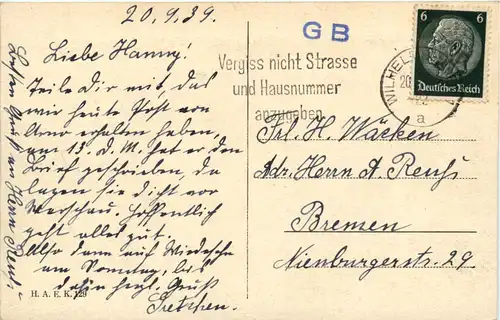 20.9.39.
Liebe Hanny!
Teile Dir mit das
wir heute Post von
Arno erhalten haben,
am 13. d. M. hat er den
Brief geschrieben, da
lagen sie dicht vor
Warschau. Hoffentlich
geht alles gut.
Also dann auf Wiedersehn
am Sonntag, bis
dahin herzl. Gruß
Gretchen.
an Herrn
H. A. E. K. 129
GB
Vergiss nicht Strasse
und Hausnummer
anzugeben
WILHELMS
20
a
6 6
Deutsches Reich
Frl. H. Wäcken
Adr. Herrn A.Reuß
Bremen
Nienburgerstr. 29